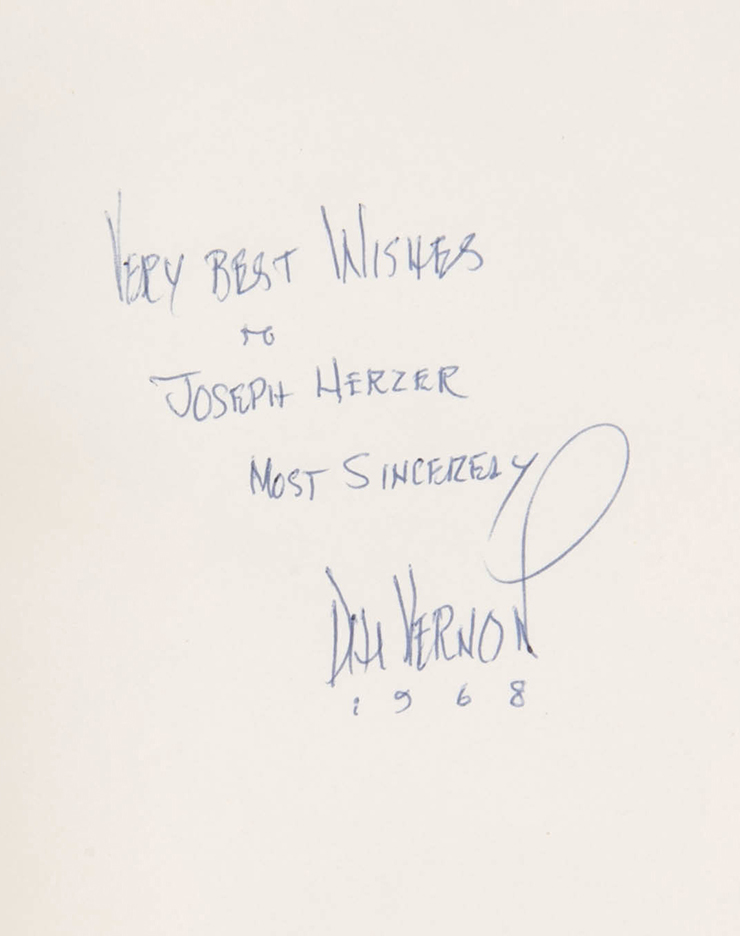 VERY BEST WISHES
TO
JOSEPH HERZER
MOST SINCERELY
DAI VERNON
1968